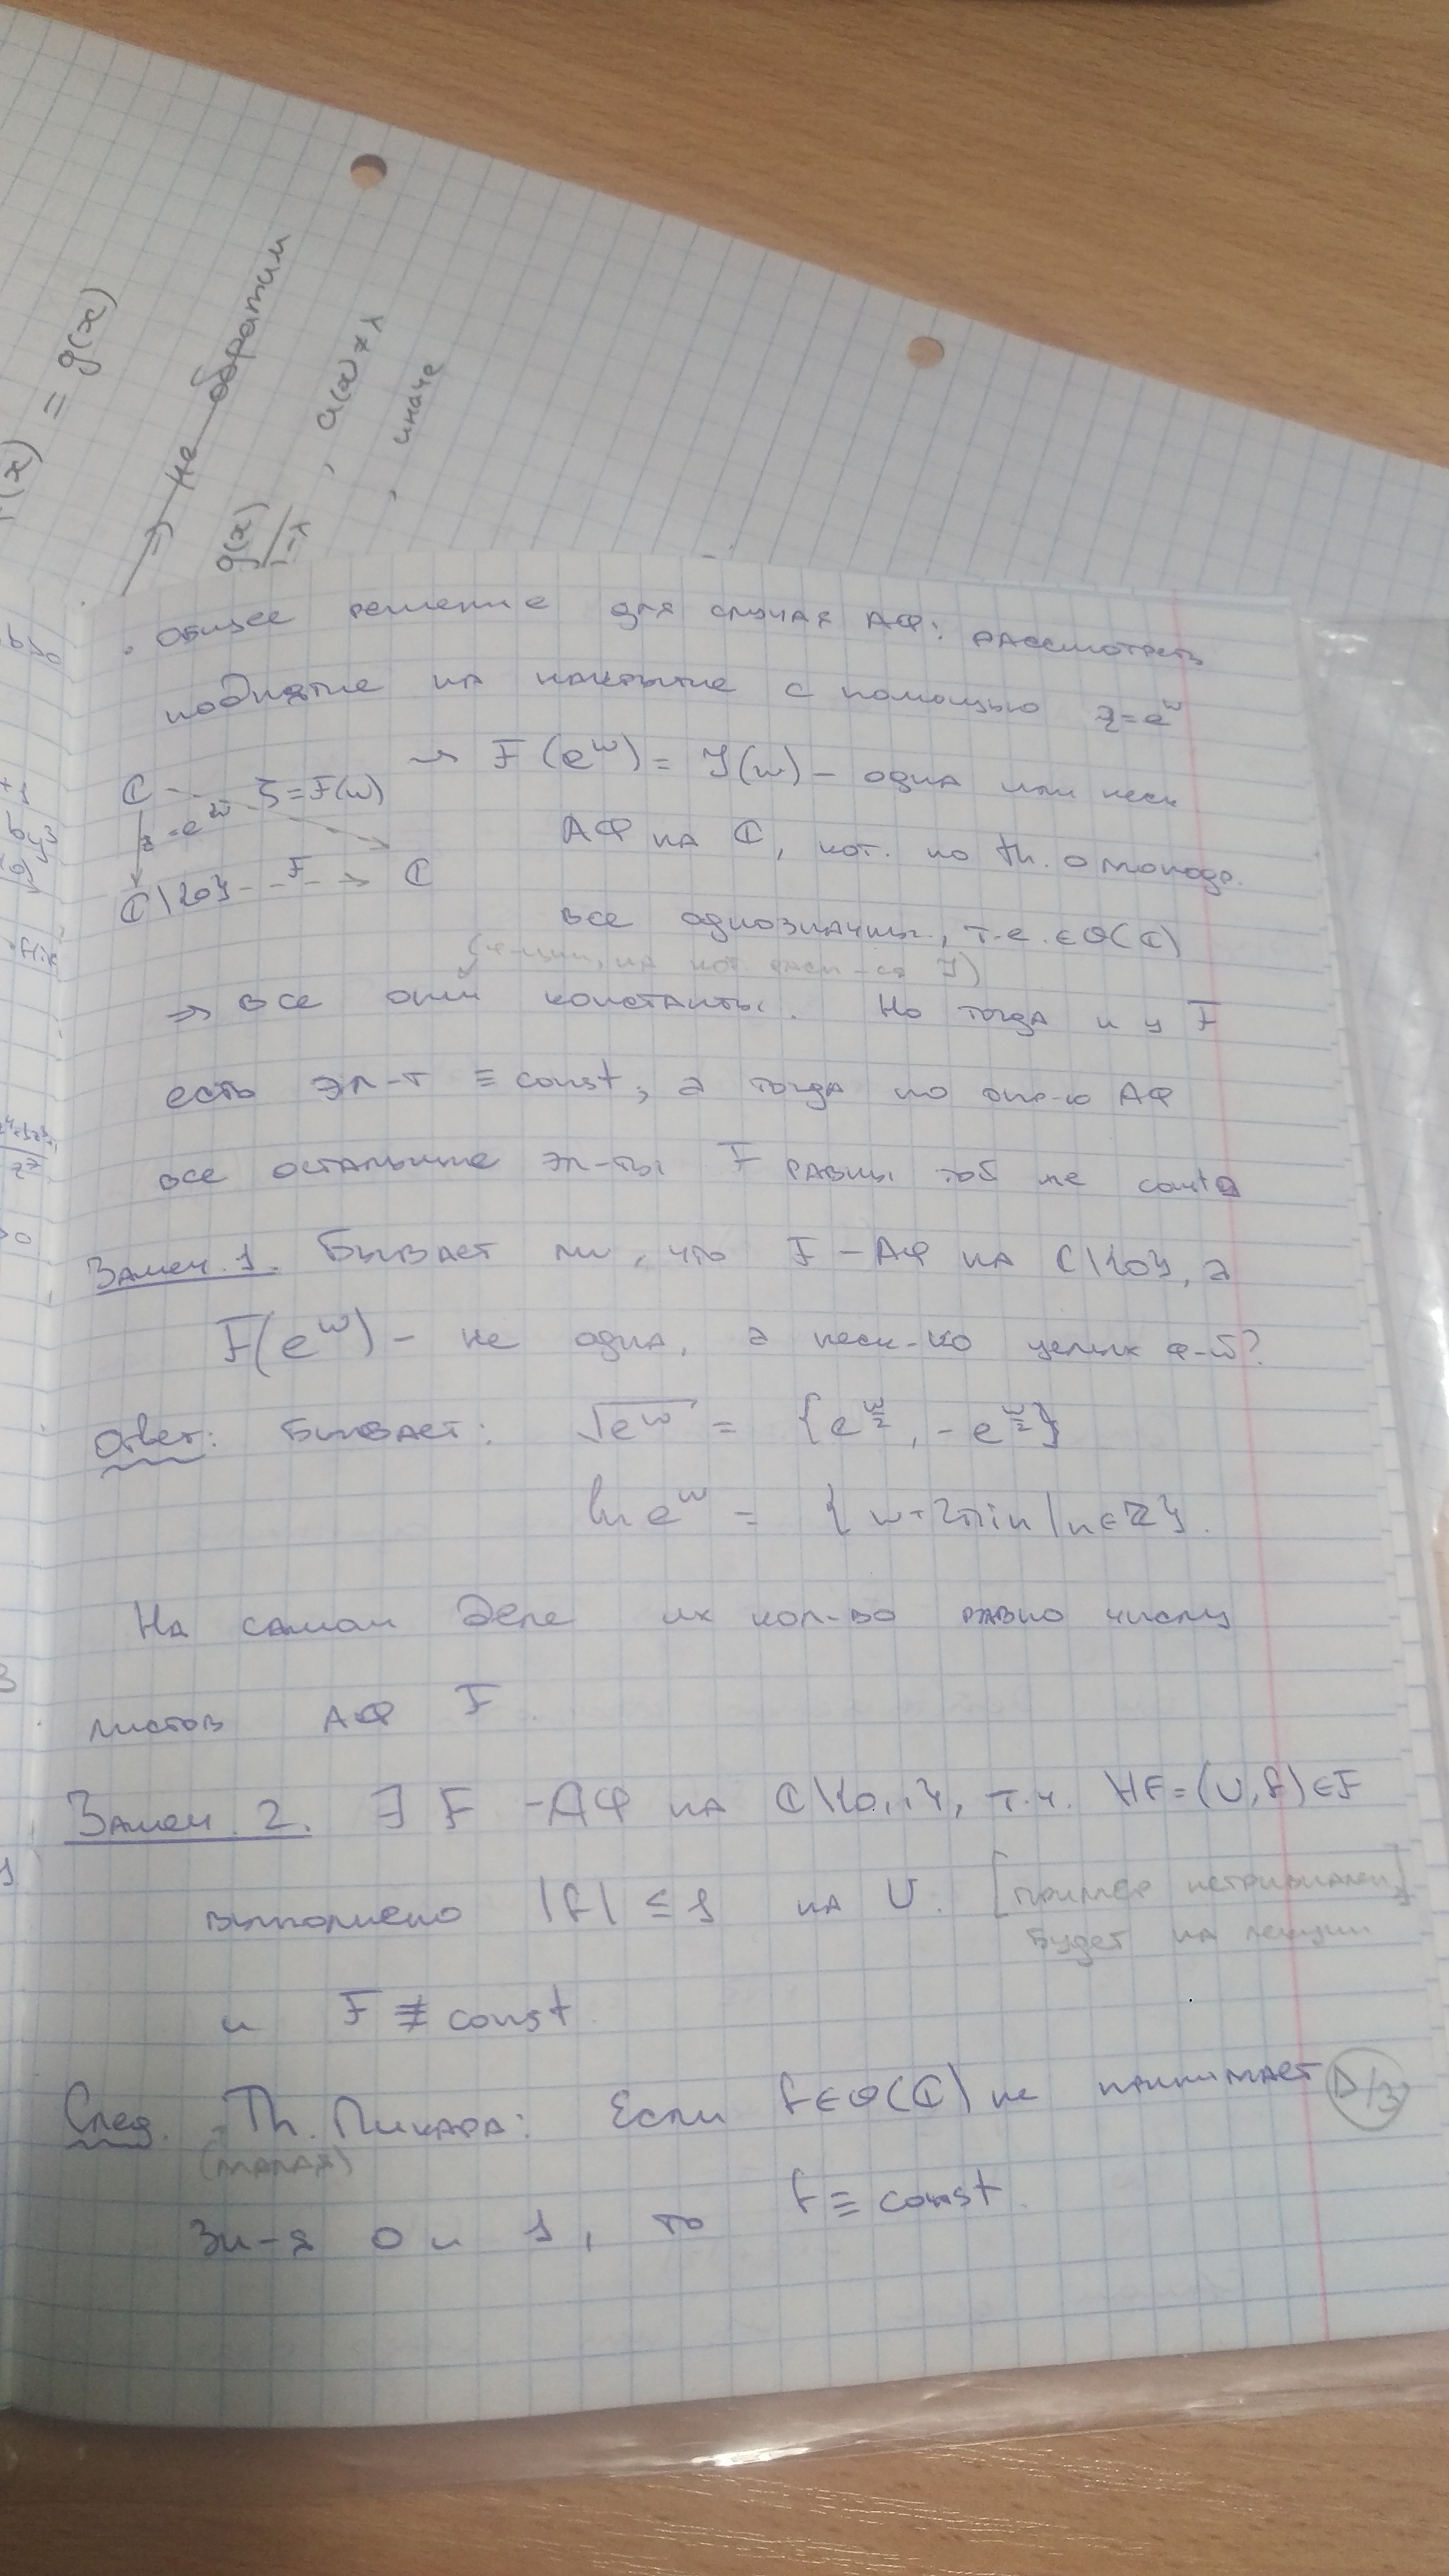 = g(x)
⇒ не обратим
g(x)
, a(x) ≠ λ
, иначе
• общее решение для случая АФ: рассмотреть
поднятие на накрытие с помощью z = e^w
⇝ F(e^w) = Y(w) – одна или неск
ℂ ζ = F(w)
z = e^w
АФ на ℂ, кот. по th. о монодр.
ℂ\{0} - F -> ℂ
все однозначны, т.е. ∈ O(ℂ)
(ф-ции, на кот. расп-ся Y)
⇒ все они константы. Но тогда и у F
есть эл-т ≡ const, а тогда по опр-ю АФ
все остальные эл-ты F равны той же const
Замеч. 1. Бывает ли, что F – АФ на ℂ\{0}, а
F(e^w) – не одна, а неск-ко целых ф-й?
Ответ: Бывает: √e^w = {e^{w/2}, -e^{w/2}}
ln e^w = {w + 2πin | n ∈ ℤ}.
На самом деле их кол-во равно числу
листов АФ F.
Замеч. 2. ∃ F – АФ на ℂ\{0,1}, т.ч. ∀F = (U, f) ∈ F
выполнено |f| ≤ 1 на U. [пример нетривиален,
будет на лекции]
и F ≢ const.
След. Th. Пикара: Если f ∈ O(ℂ) не принимает Д/З
(малая)
зн-я 0 и 1, то f ≡ const.